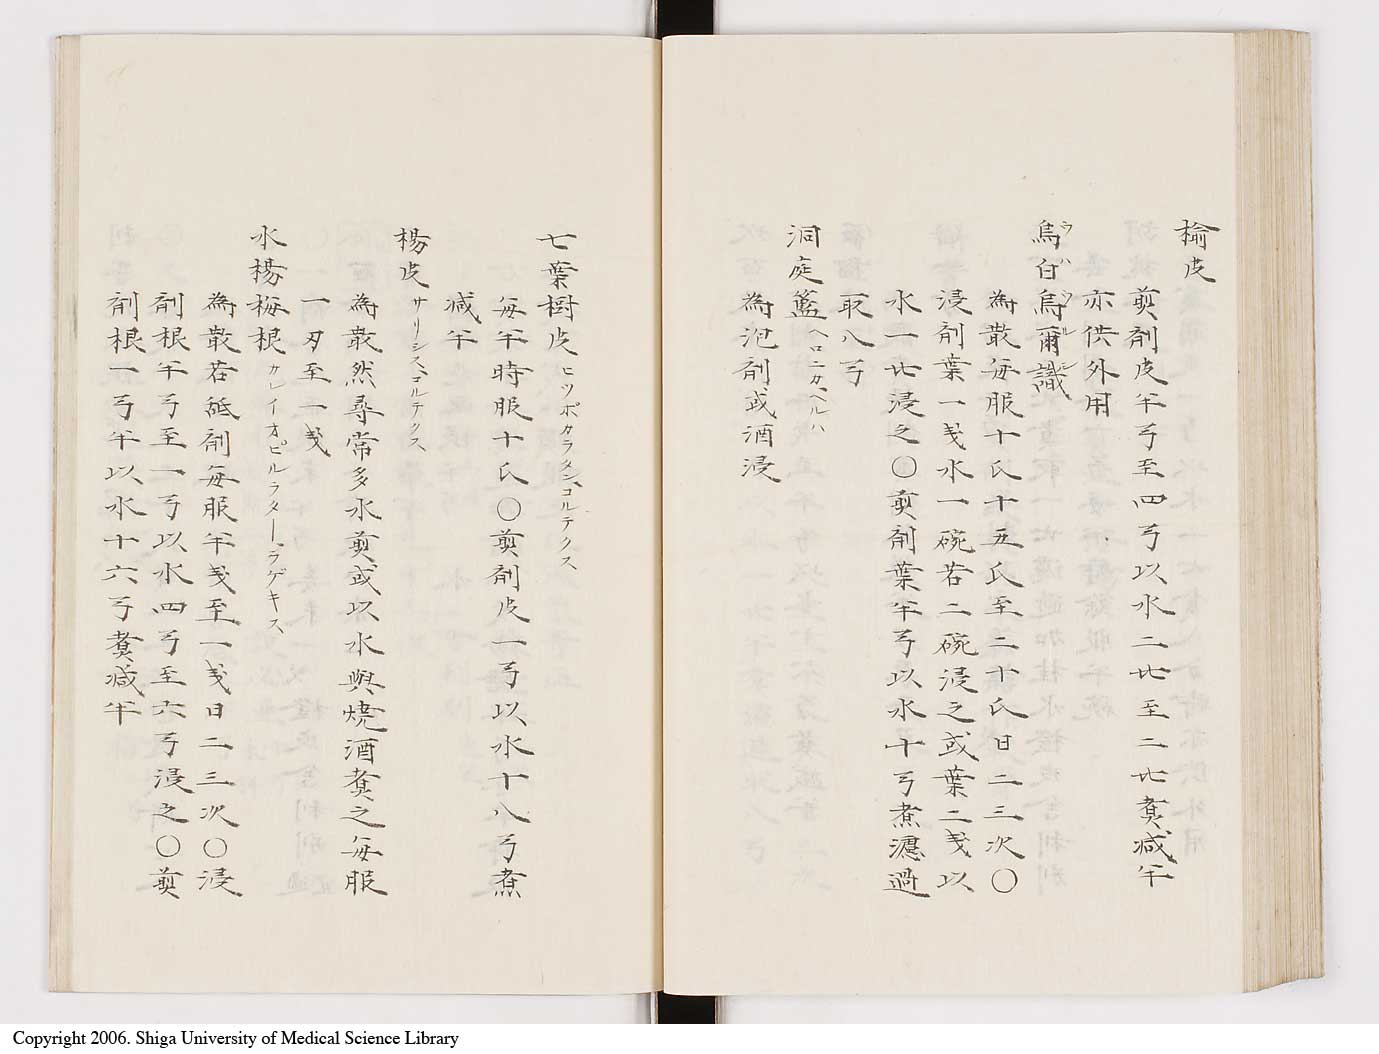 楡皮
煎剤皮半弓至四弓以水二比至二比煑减半
亦供外用
烏白烏爾識 ウハウルシ
為散毎服十氏十五氏至二十氏日二三次〇
浸剤葉一戔水一碗若二碗浸之或葉二戔以
水一比浸之〇煎剤葉半弓以水十弓煮濾過
取八弓
洞庭藍 ヘロニカ、ヘルハ
為泡剤或酒浸
七葉樹皮 ヒツポカラタン、コルテクス
毎半時服十氏〇煎剤皮一弓以水十八弓煮
减半
楊皮 サリシス、コルテクス
為散然尋常多水煎或以水與燒酒煑之毎服
一刃至一戔
水楊梅根 カレイオピルラター、ラゲキス
為散若舐剤毎服半戔至一戔日二三次〇浸
剤根半弓至一弓以水四弓至六弓浸之〇煎
剤根一弓半以水十六弓煑减半
Copyright 2006. Shiga University of Medical Science Library